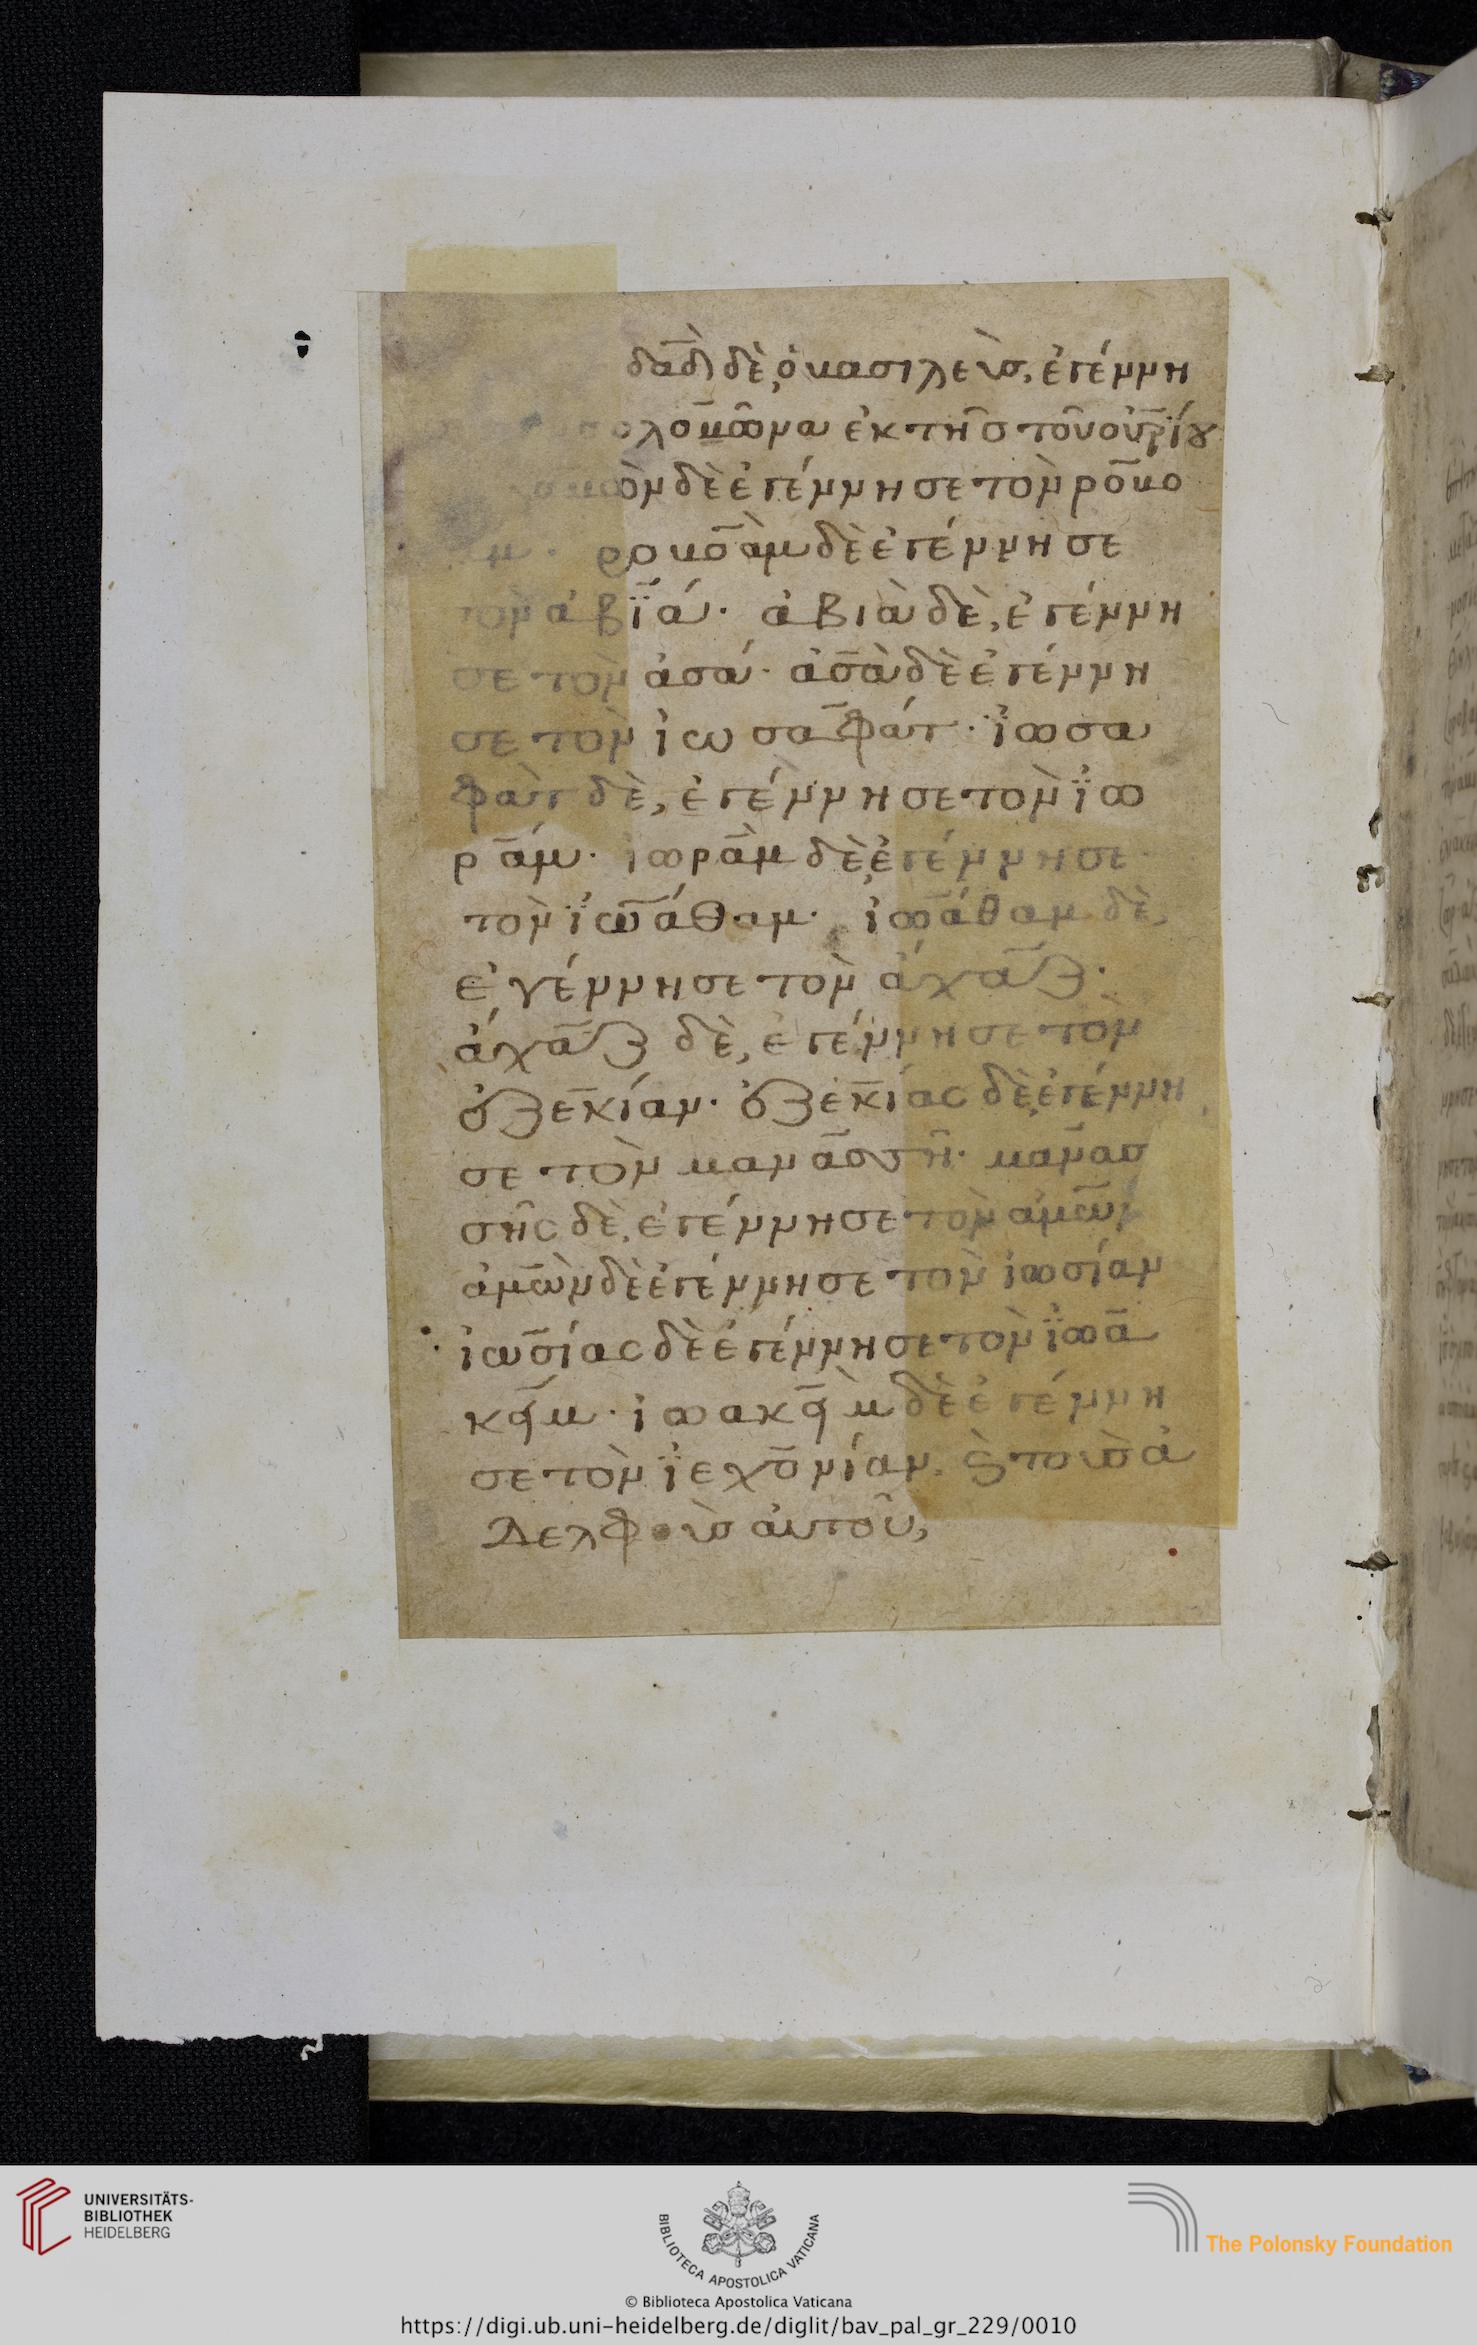 δα̅δ̅ δὲ, ὁ βασιλεὺσ, ἐγέννη
σολομῶνα ἐκ τῆσ τοῦ οὐρίου
σολομὸν δὲ ἐγέννησε τὸν ροβο
μ · ροβοὰμ δὲ ἐγέννησε
τὸν ἀβϊά · ἀβιὰ δὲ, ἐγέννη
σε τὸν ἀσά · ἀσὰ δὲ ἐγέννη
σε τὸν ἰωσαφάτ · ἰωσα
φὰτ δὲ, ἐγέννησε τὸν ϊω
ράμ · ἰωρὰμ δὲ, ἐγέννησε
τὸν ϊωάθαμ · ἰωάθαμ δὲ,
ἐγέννησε τὸν ἄχαζ ·
ἄχαζ δὲ, ἐγέννησε τὸν
ὀζεκίαν · ὀζεκίας δὲ, ἐγέννη
σε τὸν μανασσῆ · μανασ
σῆς δὲ, ἐγέννησε τὸν ἀμών
ἀμὼν δὲ ἐγέννησε τὸν ἰωσίαν
ἰωσίας δὲ ἐγέννησε τὸν ϊωα
κήμ · ἰωακὴμ δὲ ἐγέννη
σε τὸν ϊεχονίαν, ϗ τοὺσ ἀ
δελφοὺσ ἀυτοῦ,
2
UNIVERSITÄTS-
BIBLIOTHEK
HEIDELBERG
BIBLIOTECA APOSTOLICA VATICANA
The Polonsky Foundation
© Biblioteca Apostolica Vaticana
https://digi.ub.uni-heidelberg.de/diglit/bav_pal_gr_229/0010